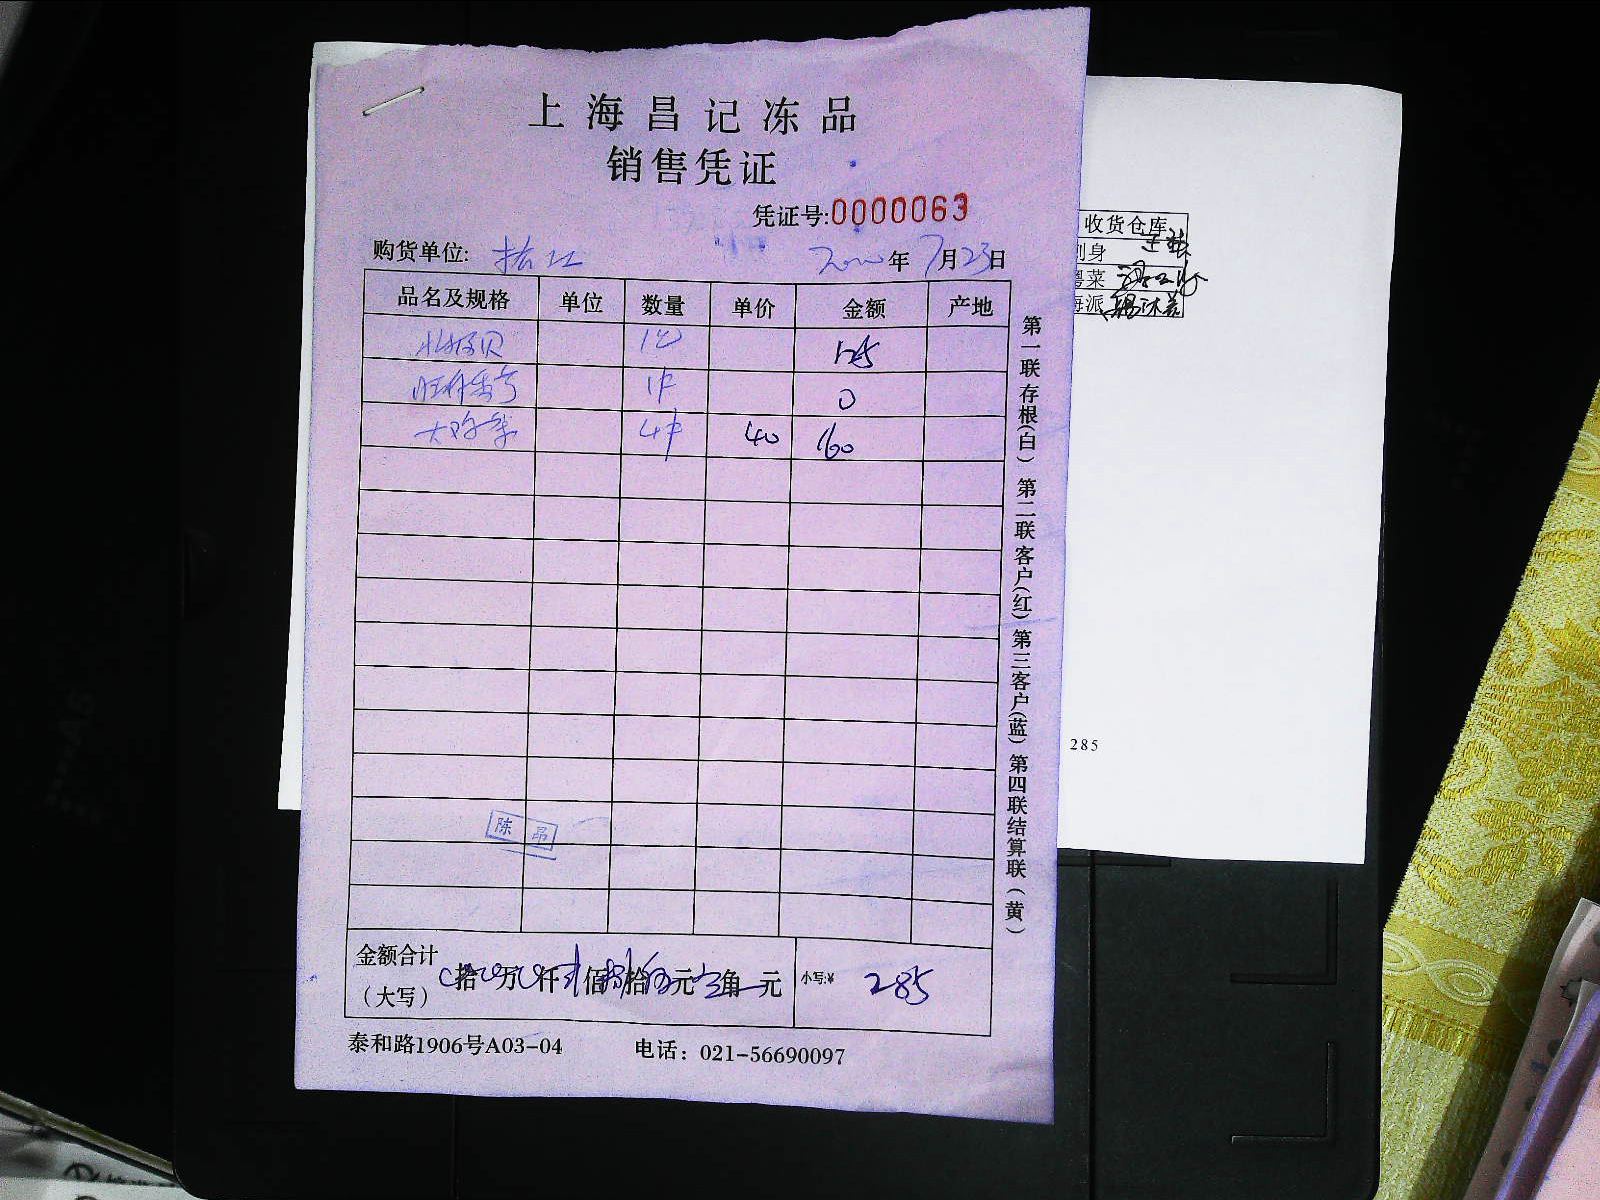 上海昌记冻品
销售凭证
凭证号:0000063
购货单位:
年 7月23日
品名及规格 单位 数量 单价 金额 产地
125
0
大 40 160
第一联存根(白) 第二联客户(红) 第三客户(蓝) 第四联结算联(黄)
陈昂
金额合计
(大写) 拾 万 仟 佰 拾 元 角 元 小写:¥ 285
泰和路1906号A03-04 电话: 021-56690097
收货仓库
身
菜
海派
285